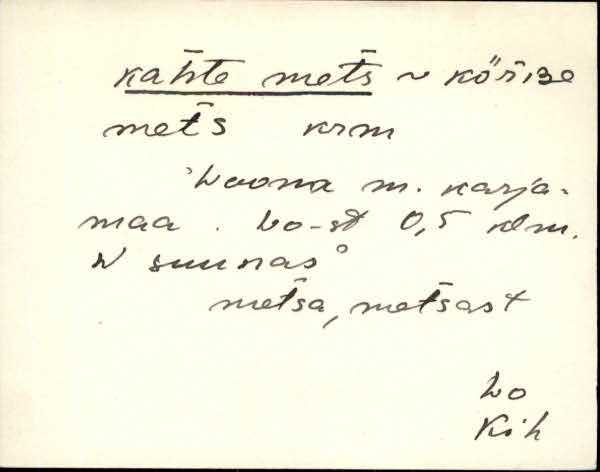 kaht̄e met̄s ~ kȫrize
met̄s krm
'Loona m. karja-
maa. Lo-st 0,5 klm.
W suunas.
met̄sa, met̄sast
Lo
Kih